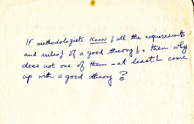 If methodologists know [all the requirements
and rules] of a good theory], then why
does not one of them — at least! — come
up with a good theory?